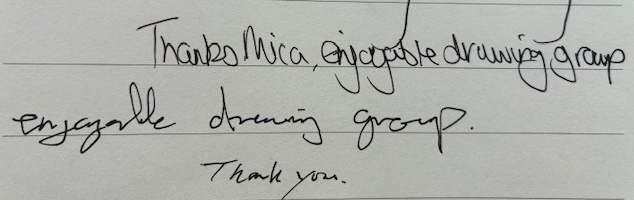 Thanks Mica, enjoyable drawing group
enjoyable drawing group.
Thank you.